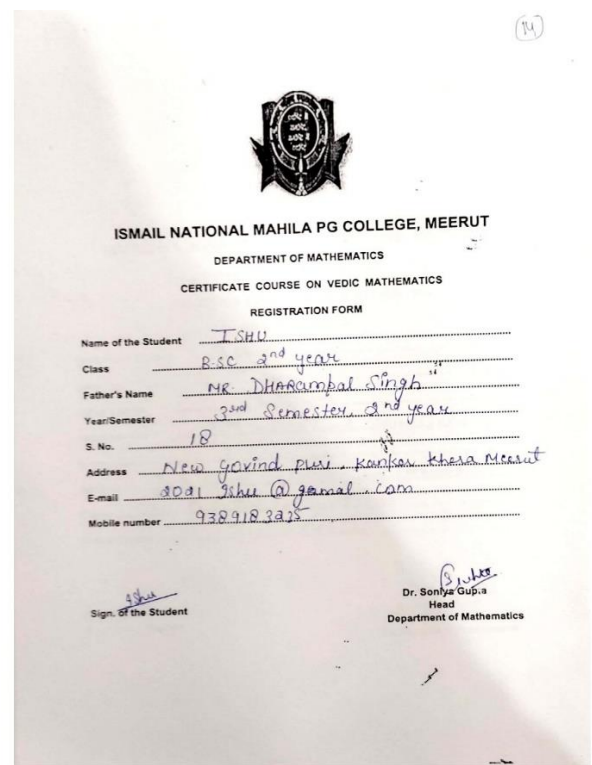 14
ISMAIL NATIONAL MAHILA PG COLLEGE, MEERUT
DEPARTMENT OF MATHEMATICS
CERTIFICATE COURSE ON VEDIC MATHEMATICS
REGISTRATION FORM
Name of the Student ISHU
Class B.SC 2nd year
Father's Name MR. DHARampal Singh
Year/Semester 3rd Semester, 2nd year
S. No. 18
Address New Govind puri, Kankar Khera Meerut
E-mail 2021 Ishu @ gamil. com
Mobile number 9389183235
Ishu
Sign. of the Student
Dr. Soniya Gupta
Head
Department of Mathematics